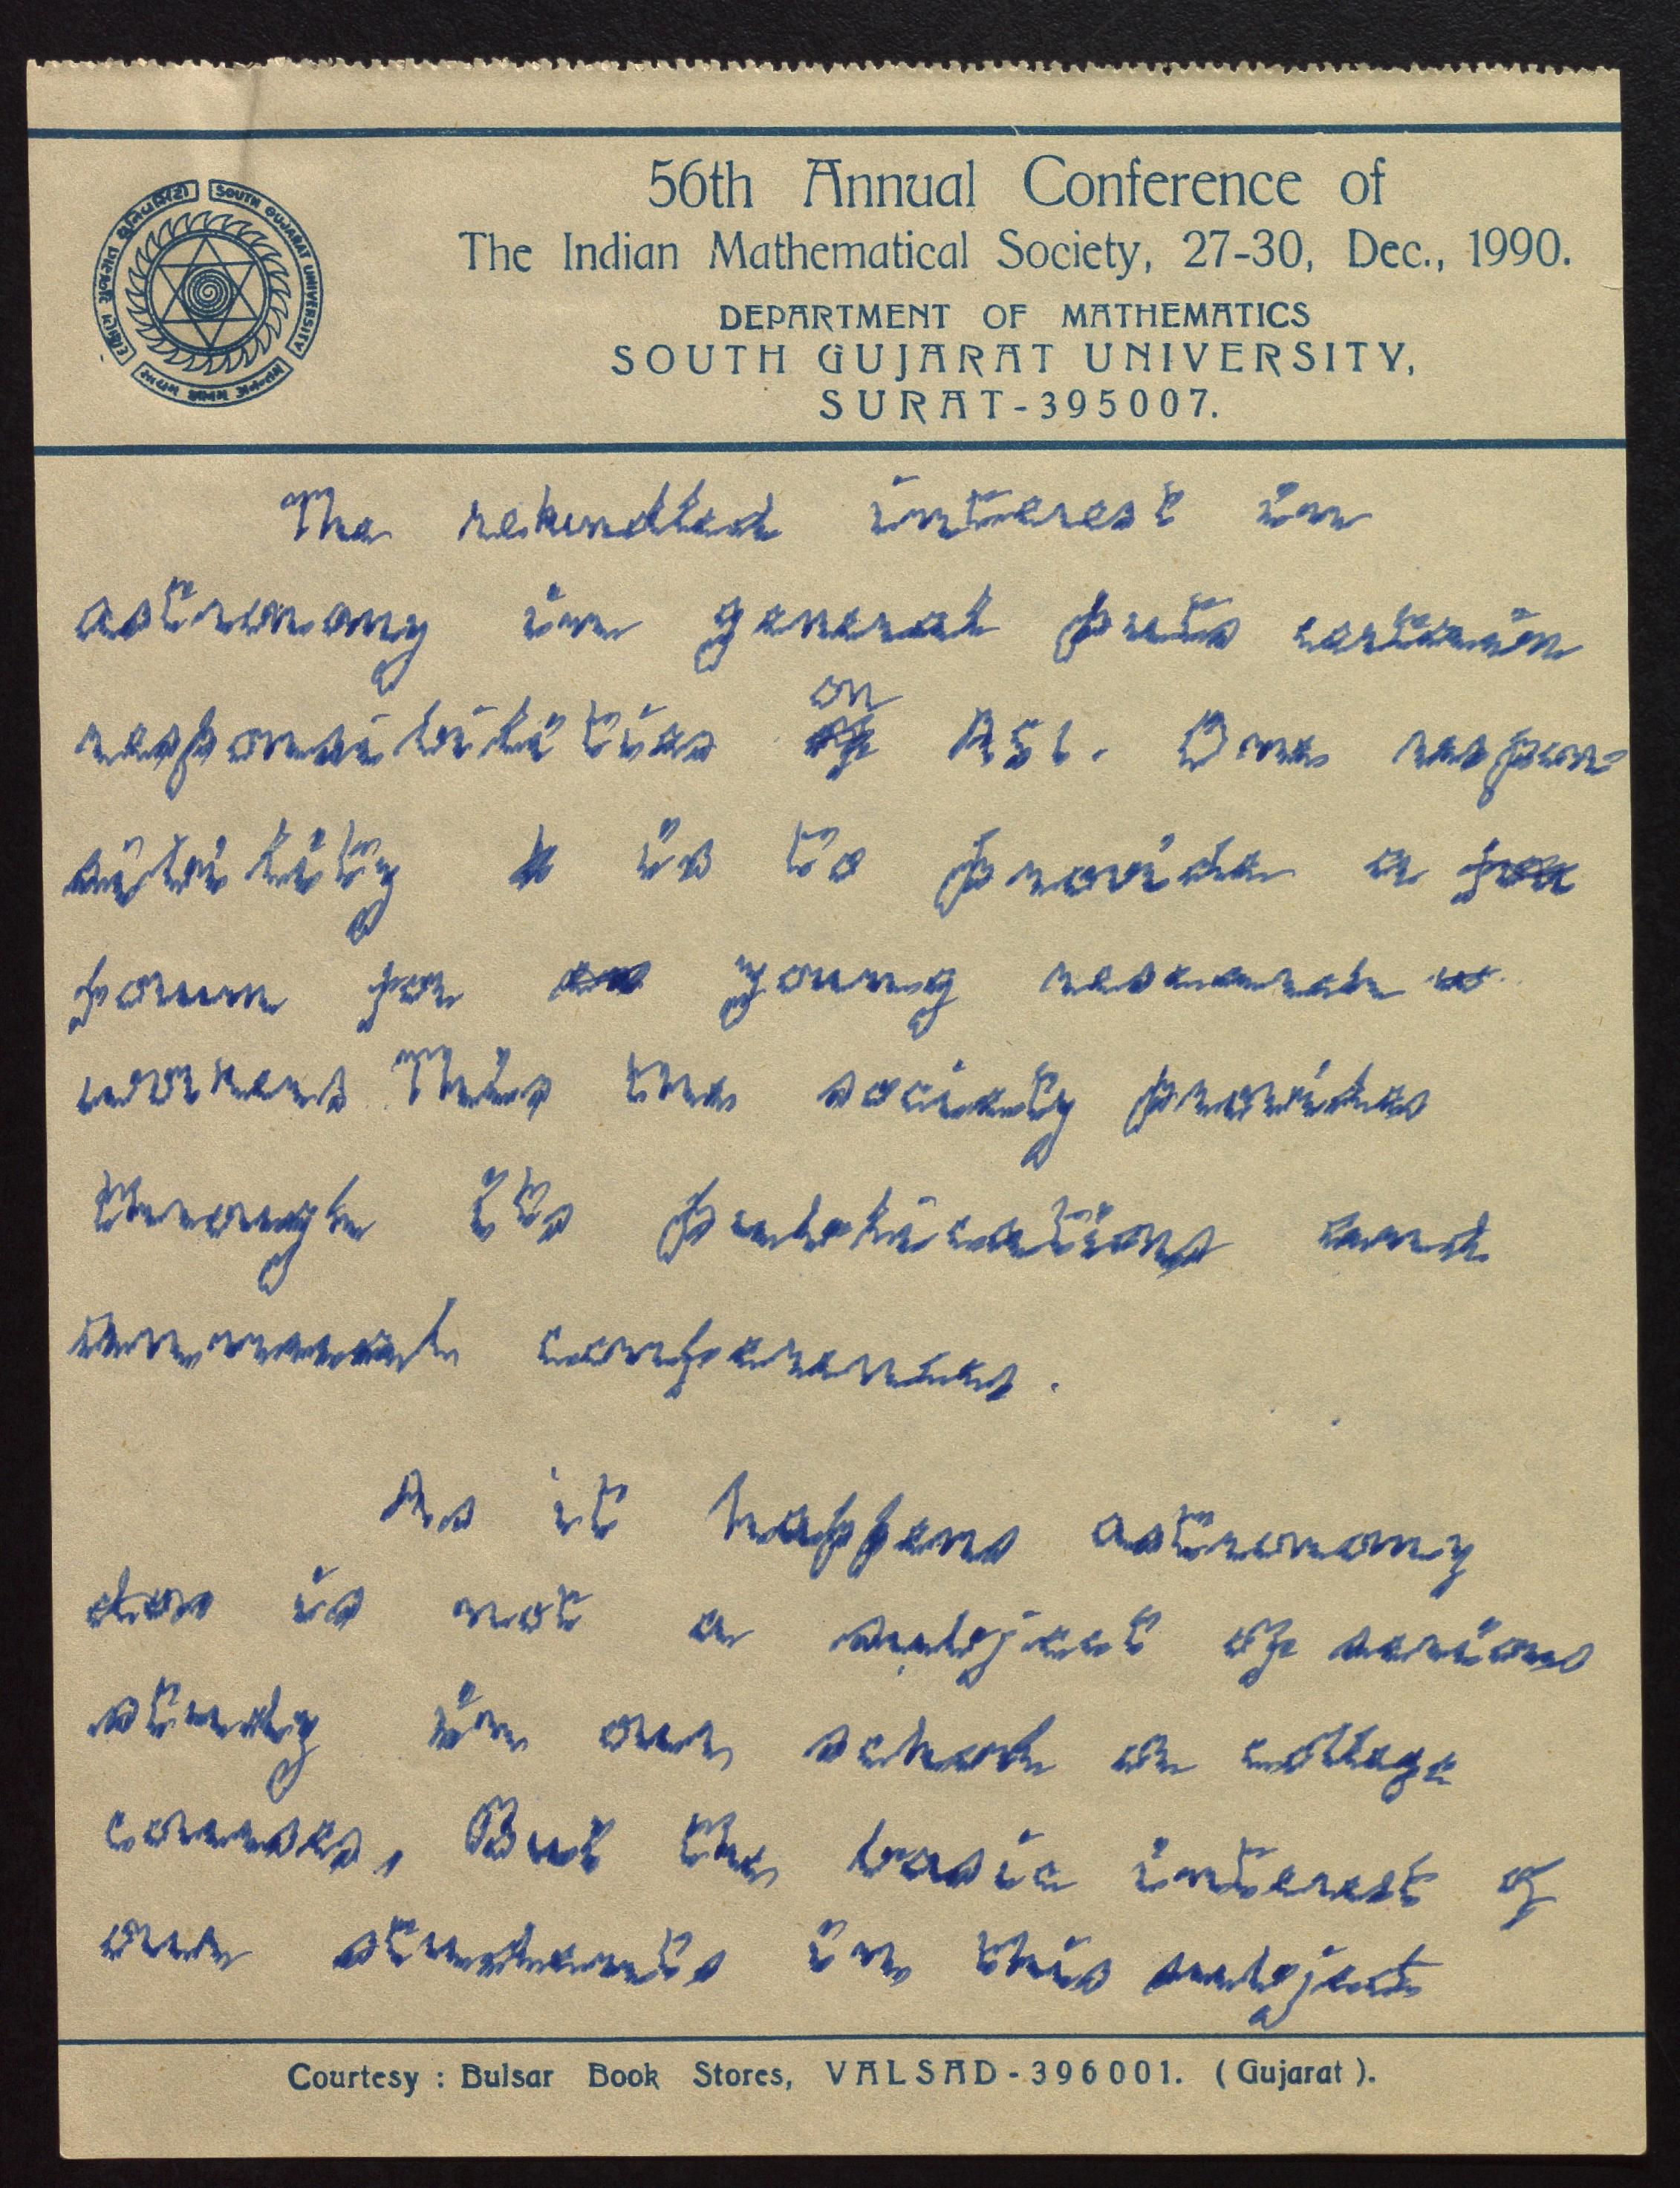 SOUTH GUJARAT UNIVERSITY
56th Annual Conference of
The Indian Mathematical Society, 27-30, Dec., 1990.
DEPARTMENT OF MATHEMATICS
SOUTH GUJARAT UNIVERSITY,
SURAT-395007.
The rekindled interest in
astronomy in general puts certain
responsibilities on ASI. One respon-
sibility is to provide a
forum for young research
workers This the society provides
through its publications and
annual conferences.
As it happens astronomy
is not a subject of serious
study in our school or college
courses, But the basic interest of
our students in this subject
Courtesy : Bulsar Book Stores, VALSAD-396001. (Gujarat).